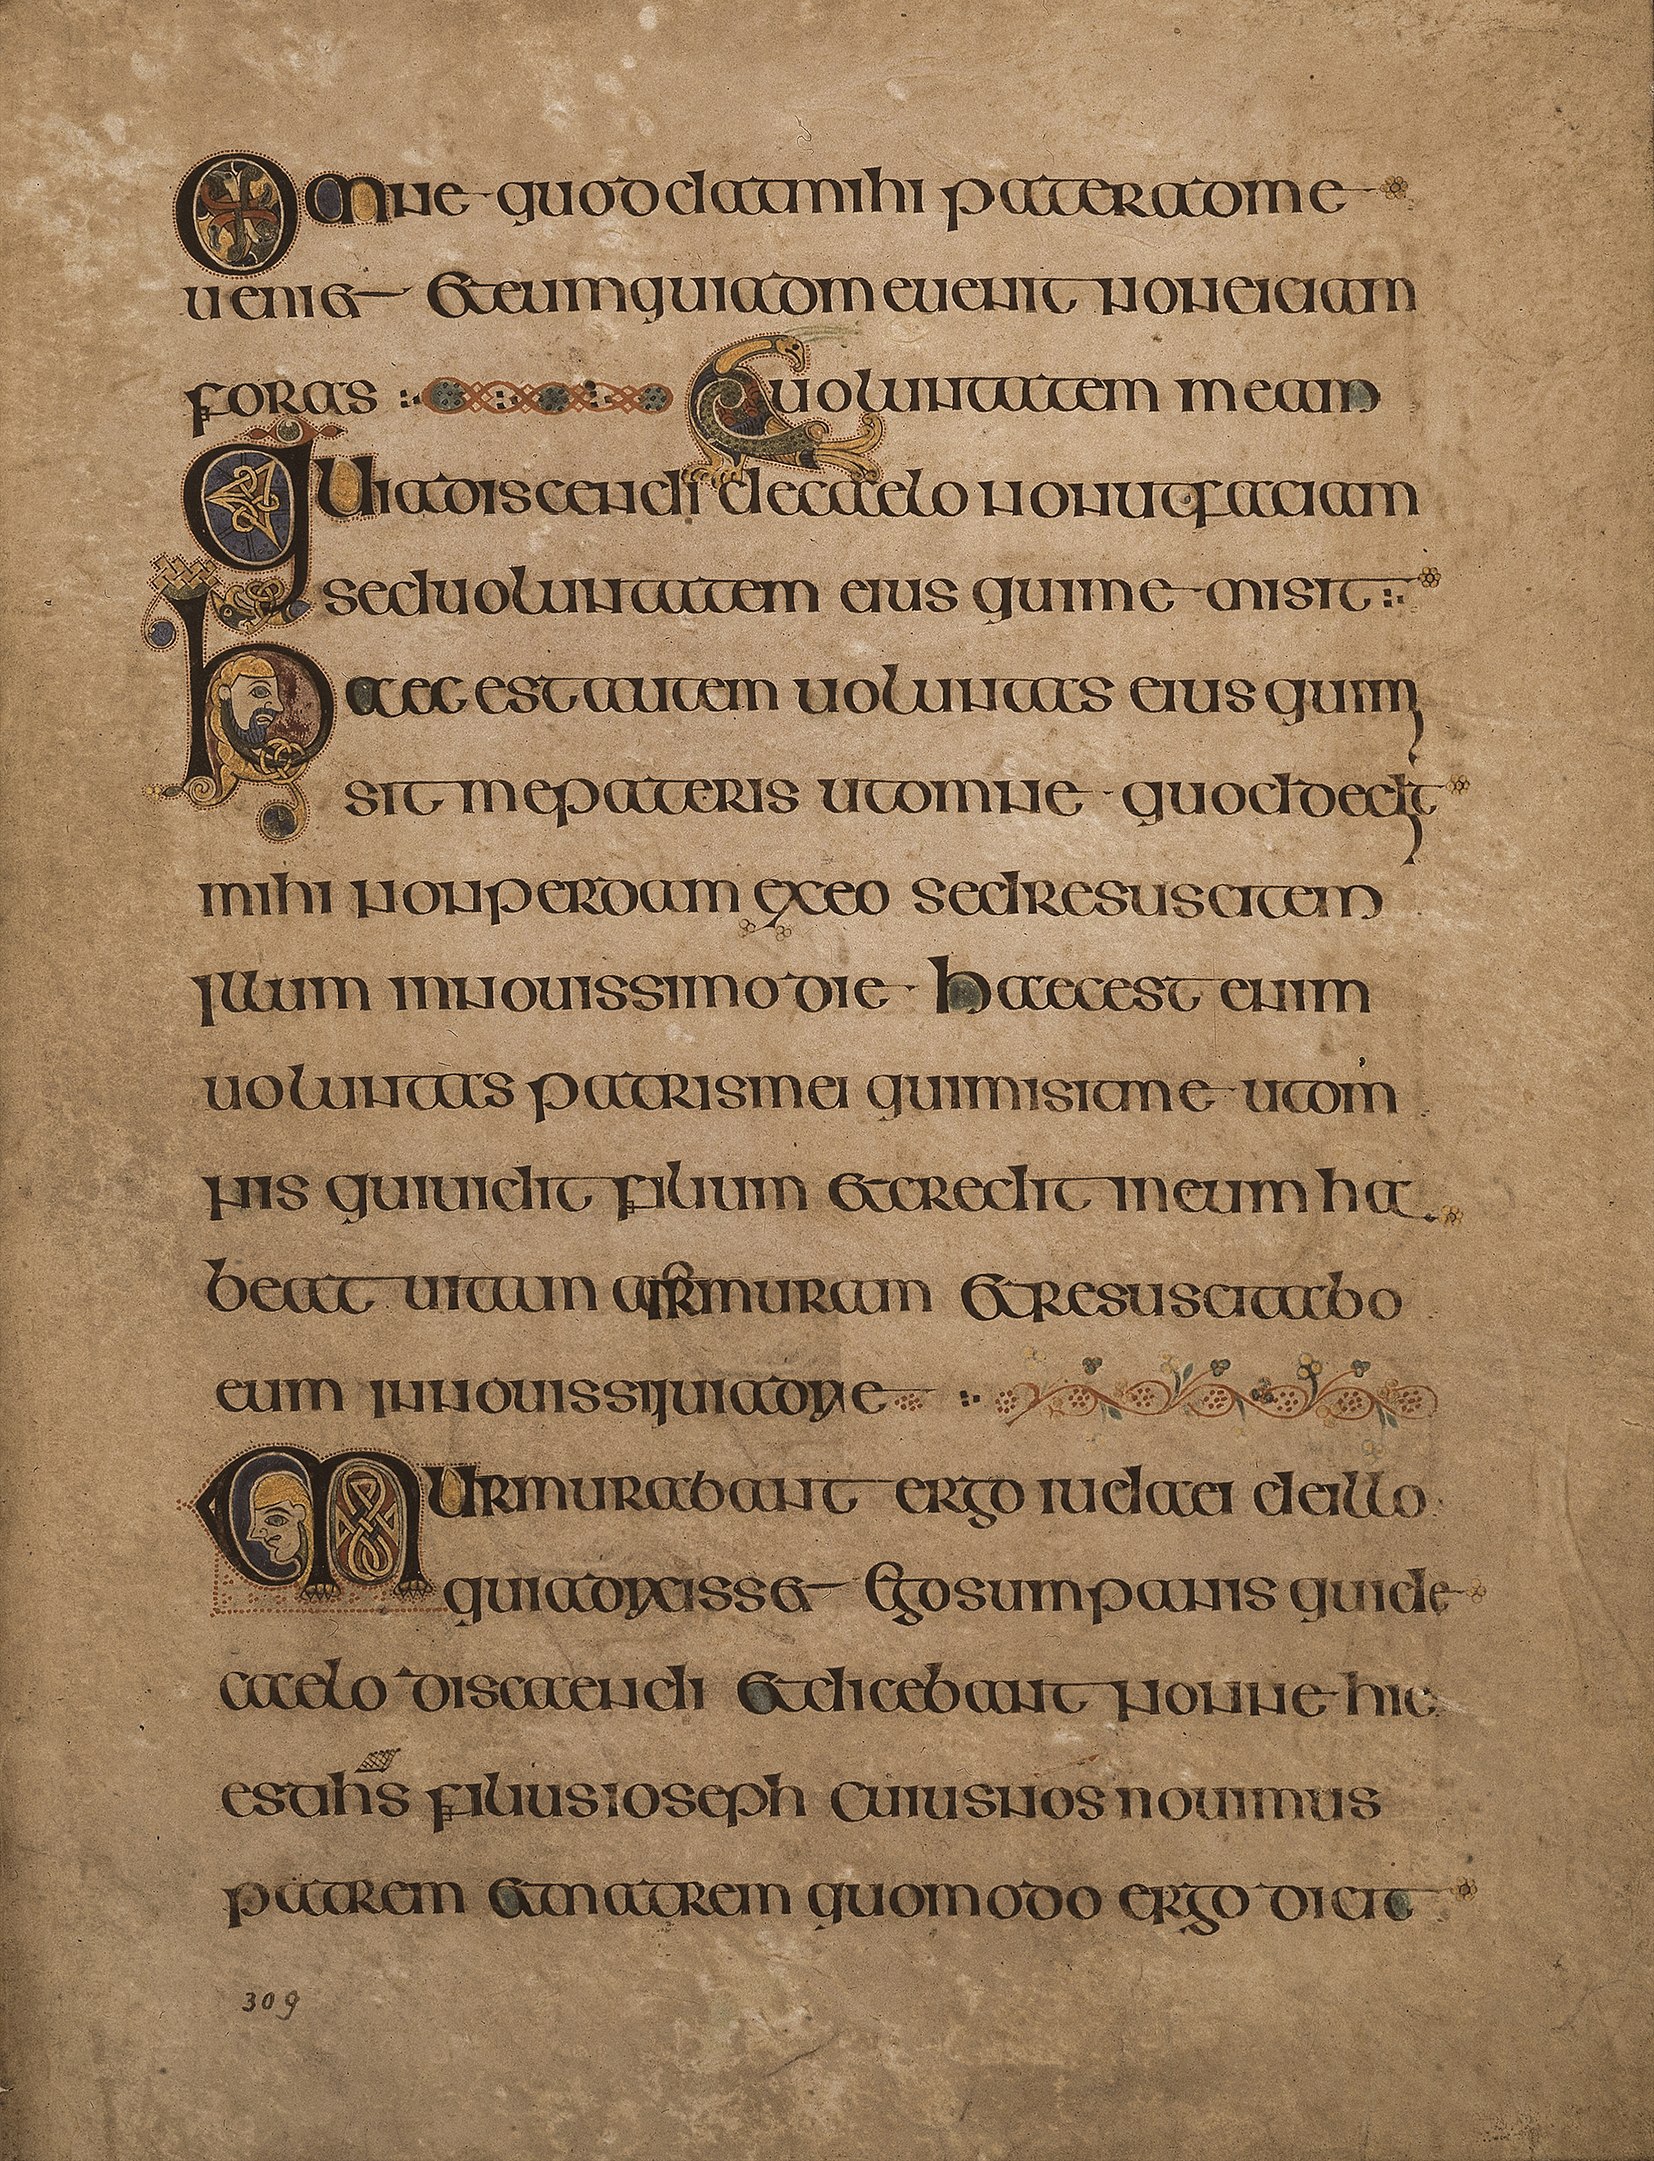 Omne quod dat mihi pater ad me
ueniet et eum qui ad me uenit non eiciam
foras uoluntatem meam
quia discendi de caelo non ut faciam
sed uoluntatem eius qui me misit
haec est autem uoluntas eius qui mi
sit me pateris ut omne quod dedit
mihi non perdam ex eo sed resuscitem
illum in nouissimo die haec est enim
uoluntas patris mei qui misit me ut om
nis qui uidit filium et credit in eum ha
beat uitam et resuscitabo
eum in
Murmurabant ergo iudaei de illo
quia dixisset ego sum panis qui de
caelo discaendi et dicebant nonne hic
est ihs filius ioseph cuius nos nouimus
patrem et matrem quomodo ergo dicit
309